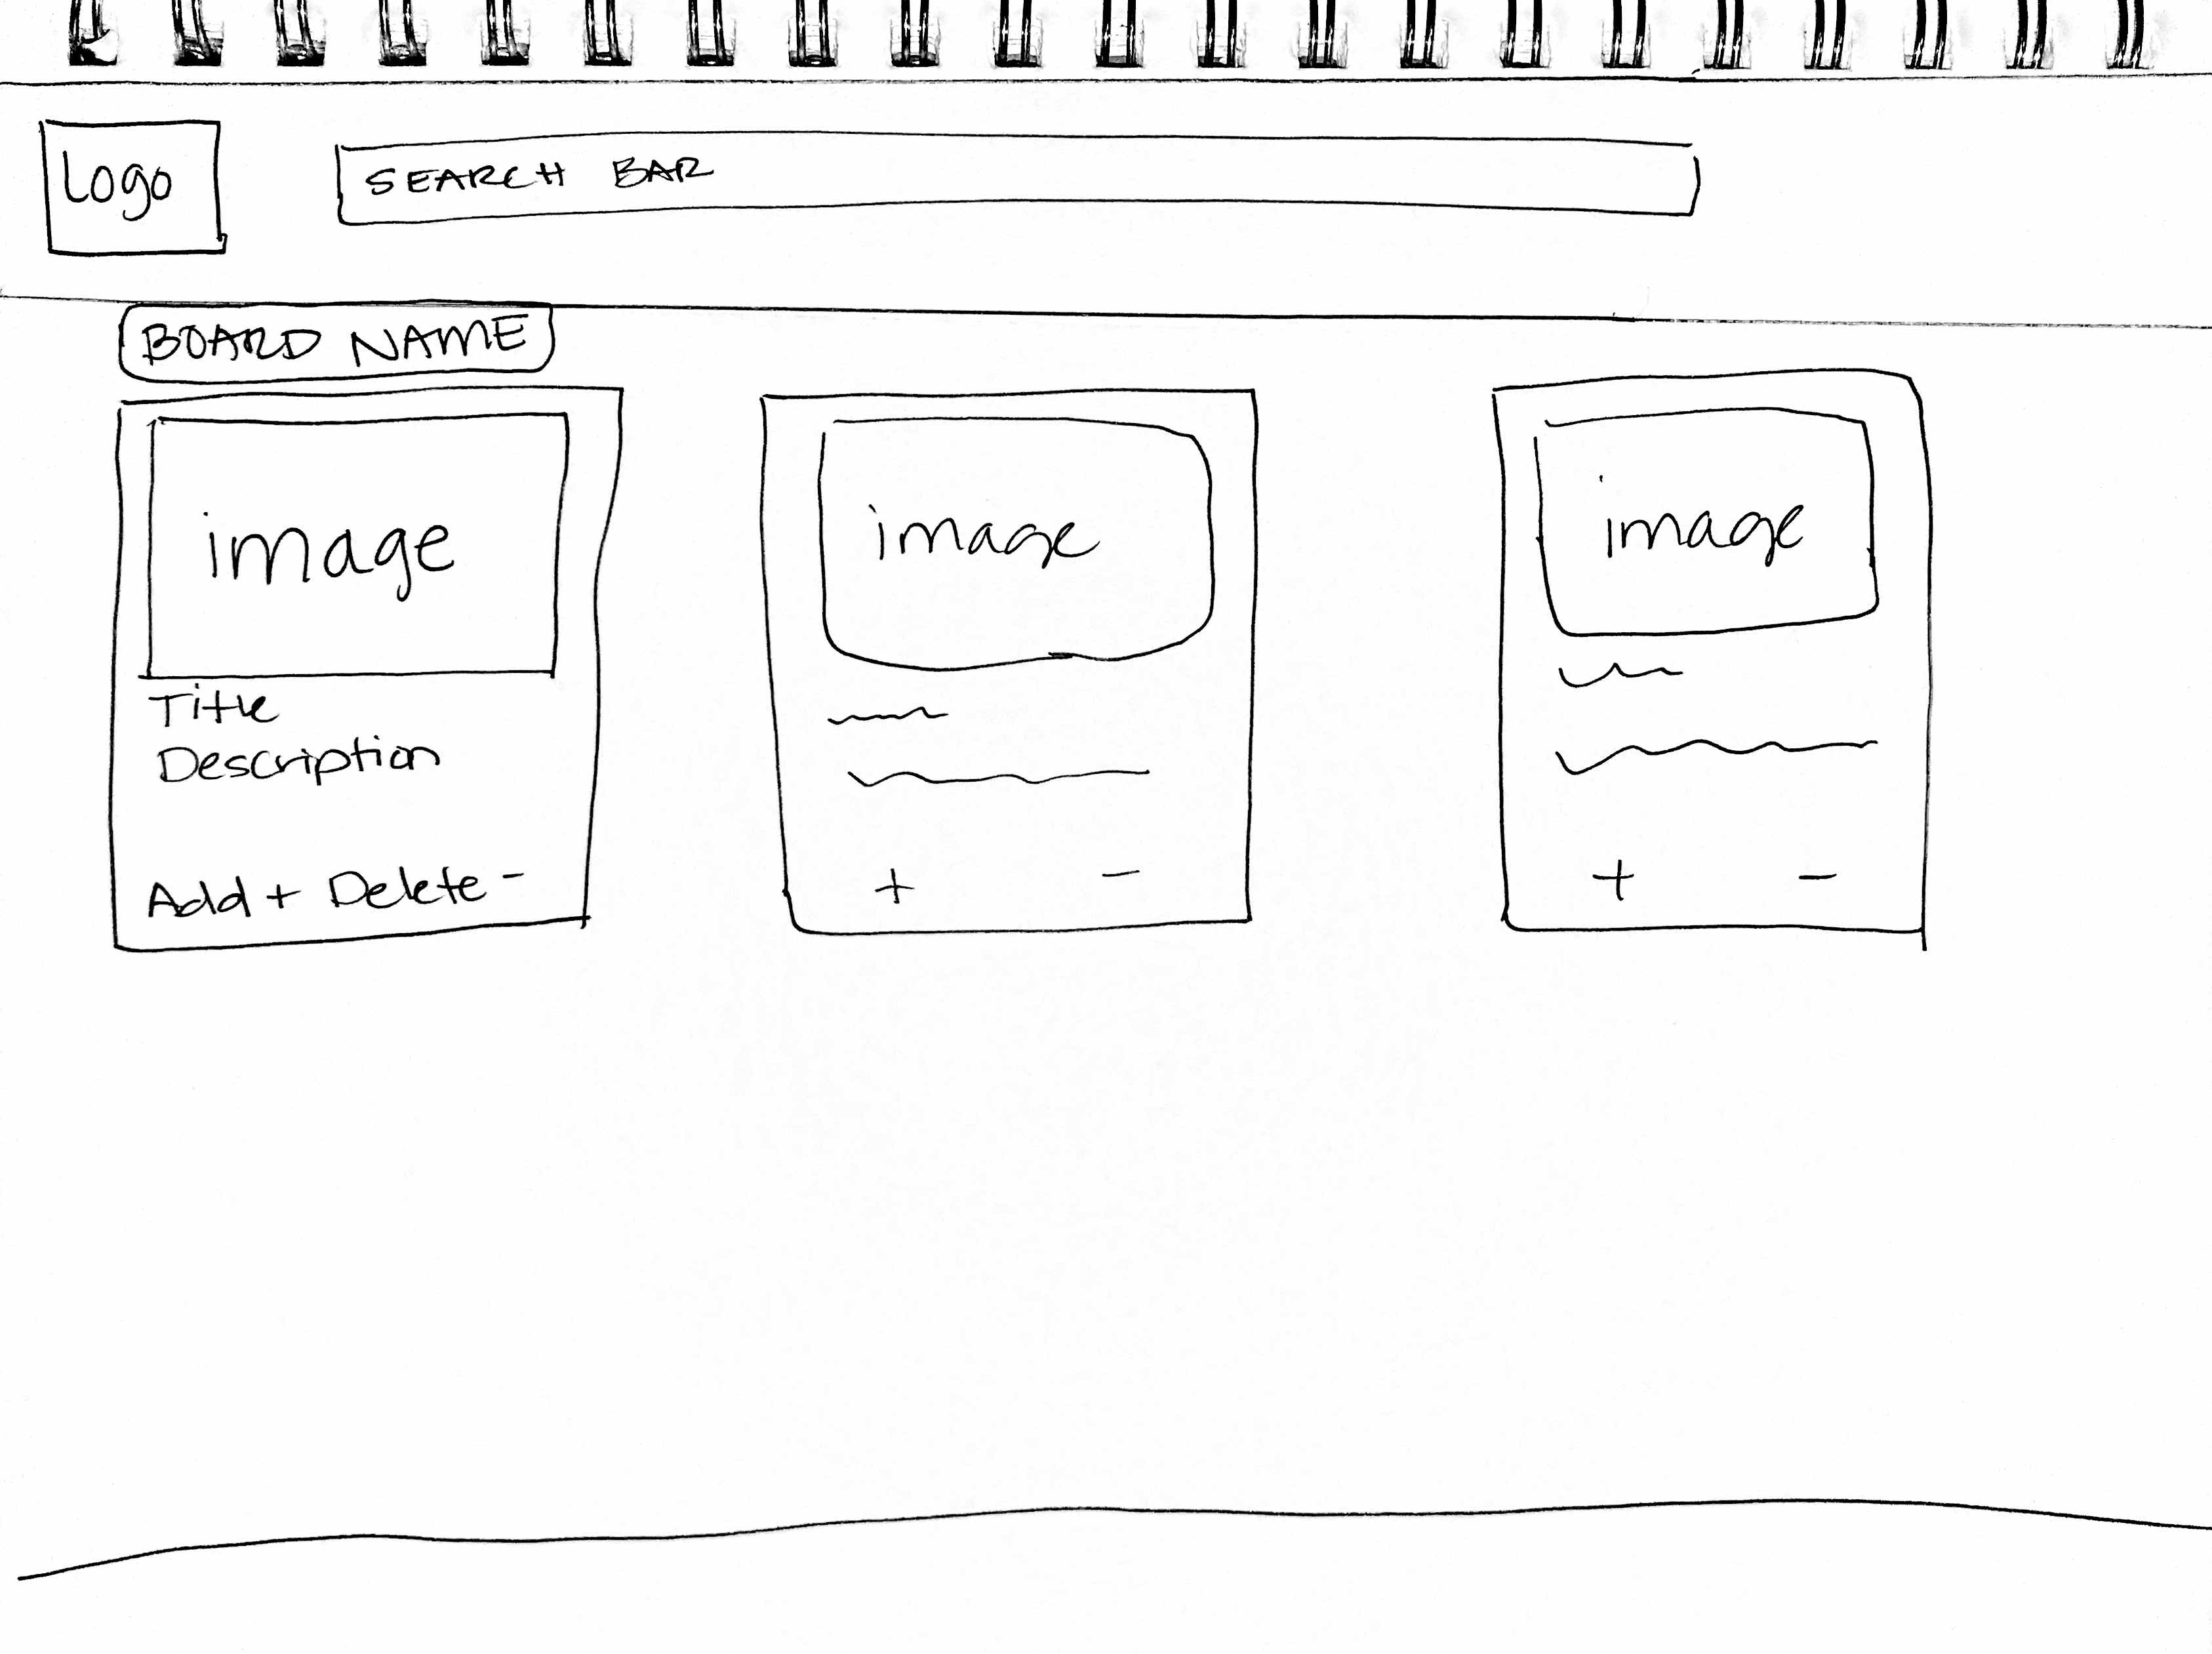 Logo
SEARCH BAR
BOARD NAME
image
Title
Description
Add + Delete -
image
+ -
image
+ -